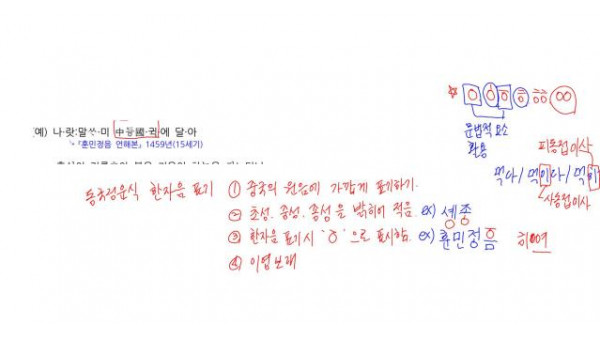 문법적 요소
활용
피동접미사
먹다/먹이다/먹이
사동접미사
예) 나·랏:말ᄊᆞ·미 中듕國·귁에 달·아
『훈민정음 언해본』 1459년(15세기)
동국정운식 한자음 표기 ① 중국의 원음에 가깝게 표기하기.
② 초성, 중성, 종성을 밝히어 적음. ex) 솅종
③ 한자음 표기시 'ㅇ'으로 표시함. ex) 훈민정음
④ 이영보래